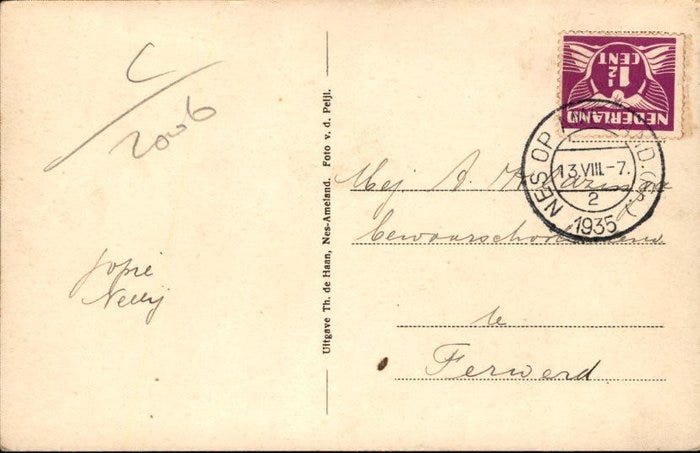 C
2006
Jopie
Nelly
Uitgave Th. de Haan, Nes-Ameland. Foto v. d. Peijl.
NEDERLAND
1½
CENT
NES OP
13.VIII.-7.
2
1935
Mej A.
te
Ferwerd